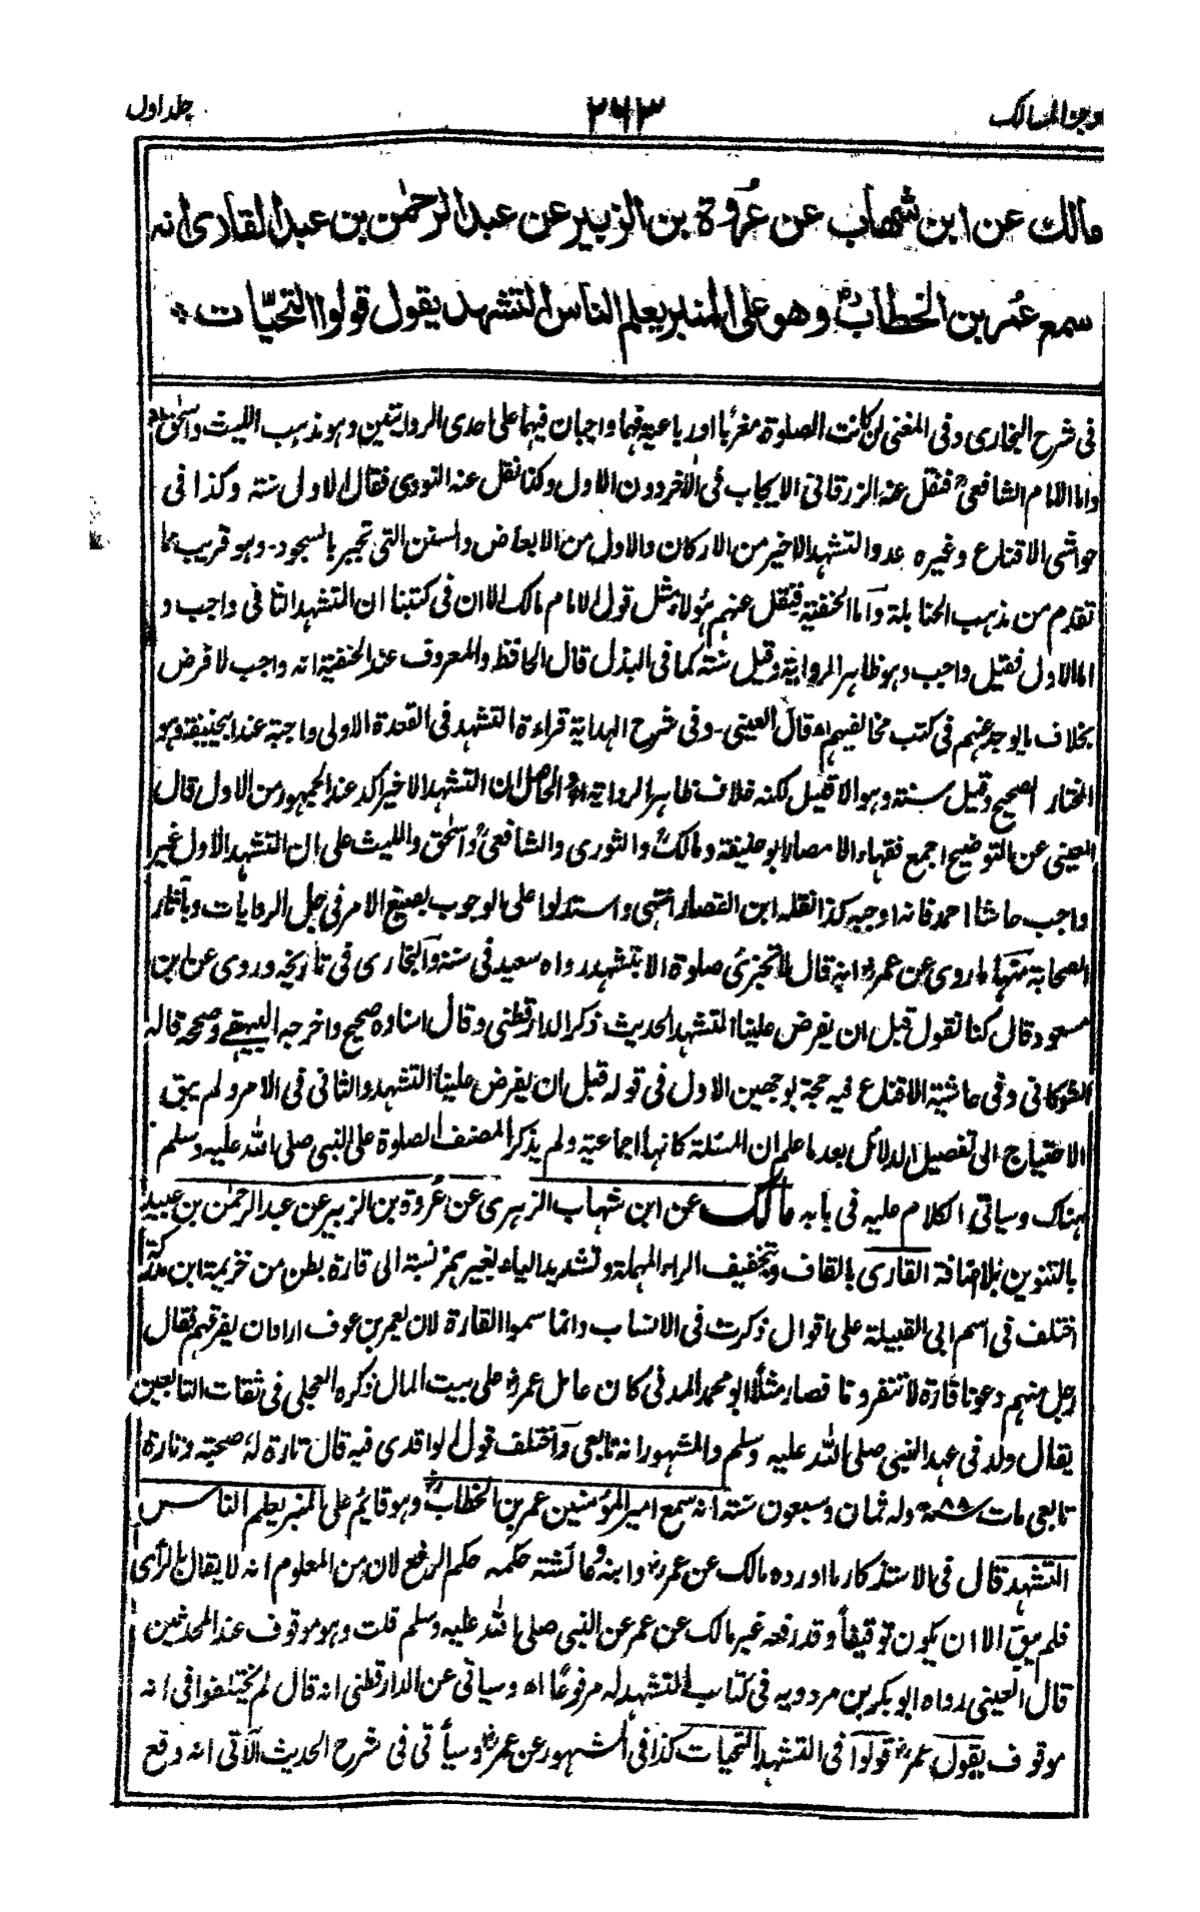 وجز المسالك ٢٦٣ جلد اول
مالك عن ابن شهاب عن عروة بن الزبير عن عبد الرحمٰن بن عبد القارى انه
سمع عمر بن الخطابؓ وهو على المنبر يعلم الناس التشهد يقول قولوا التحيّات
فى شرح البخارى وفى المغنى ان كانت الصلوة مغربًا او رباعية فهما واجبان فيها على احدى الروايتين وهو مذهب الليث واسحٰق
واما الامام الشافعىؒ فنقل عنه الزرقانى الايجاب فى الآخر دون الاول وكذا نقل عنه النووى فقال الاول سنة وكذا فى
حواشى الاقناع وغيره عدوا التشهد الاخير من الاركان والاول من الابعاض والسنن التى تجبر بالسجود۔ وهو قريب مما
تقدم من مذهب الحنابلة واما الحنفية فنقل عنهم هؤلاء مثل قول الامام مالك الا ان فى كتبنا ان التشهد الثانى واجب و
اما الاول فقيل واجب وهو ظاهر الرواية وقيل سنة كما فى البذل قال الحافظ والمعروف عند الحنفية انه واجب لا فرض
بخلاف ما يوجد عنهم فى كتب مخالفيهم اھ قال العينى۔ وفى شرح الهداية قراءة التشهد فى القعدة الاولى واجبة عند ابيحنيفة وهو
المختار الصحيح وقيل سنة وهو الاقيس لكنه خلاف ظاهر الرواية اھ والحاصل ان التشهد الاخير اكد عند الجمهور من الاول قال
العينى عن التوضيح اجمع فقهاء الامصار ابو حنيفة ومالكؒ والثورى والشافعىؒ واسحٰق والليث على ان التشهد الاول غير
واجب حاشا احمد فانه اوجبه كذا نقله ابن القصار انتهى واستدلوا على الوجوب بصيغ الامر فى جل الروايات وبآثار
الصحابة منها ما روى عن عمرؓ انه قال لا تجزئ صلوة الا بتشهد رواه سعيد فى سننه والبخارى فى تاريخه وروى عن ابن
مسعود قال كنا نقول قبل ان يفرض علينا التشهد الحديث ذكر الدارقطنى وقال اسناده صحيح واخرجه البيهقى وصححه قاله
الشوكانى وفى حاشية الاقناع فيه حجة بوجهين الاول فى قوله قبل ان يفرض علينا التشهد والثانى فى الامر ولم يبق
الاحتياج الى تفصيل الدلائل بعد ما علم ان المسئلة كانها اجماعية ولم يذكر المصنف الصلوة على النبى صلى الله عليه وسلم
هناك وسياتى الكلام عليه فى بابه مالك عن ابن شهاب الزهرى عن عُروة بن الزبير عن عبد الرحمٰن بن عبيد
بالتنوين بلا اضافة القارى بالقاف وتخفيف الراء المهملة وتشديد الياء بغير همز نسبة الى قارة بطن من خزيمة ابن مدركة
اختلف فى اسم ابى القبيلة على اقوال ذكرت فى الانساب وانما سموا القارة لان يعمر بن عوف اراد ان يفرقهم فقال
رجل منهم دعونا قارة لا تنفرونا فصار مثلاً ابو محمد المدنى كان عامل عمرؓ على بيت المال ذكره العجلى فى ثقات التابعين
يقال ولد فى عهد النبى صلى الله عليه وسلم والمشهور انه تابعى واختلف قول الواقدى فيه قال تارة لهٗ صحبته وتارة
تابعى مات ٨٨ھ وله ثمان وسبعون سنة انه سمع امير المؤمنين عمر بن الخطابؓ وهو قائم على المنبر يعلم الناس
التشهد قال فى الاستذكار ما اورده مالك عن عمرؓ وابنه وعائشة حكمه حكم الرفع لان من المعلوم انه لا يقال بالرأى
فلم يبق الا ان يكون توقيفاً وقد رفعه غير مالك عن عمر عن النبى صلى الله عليه وسلم قلت وهو موقوف عند المحدثين
قال العينى رواه ابو بكر بن مردويه فى كتاب التشهد له مرفوعًا اھ وسياتى عن الدارقطنى انه قال لم يختلفوا فى انه
موقوف يقول عمرؓ قولوا فى التشهد التحيات كذا فى المشهور عن عمرؓ وسيأتى فى شرح الحديث الآتى انه وقع